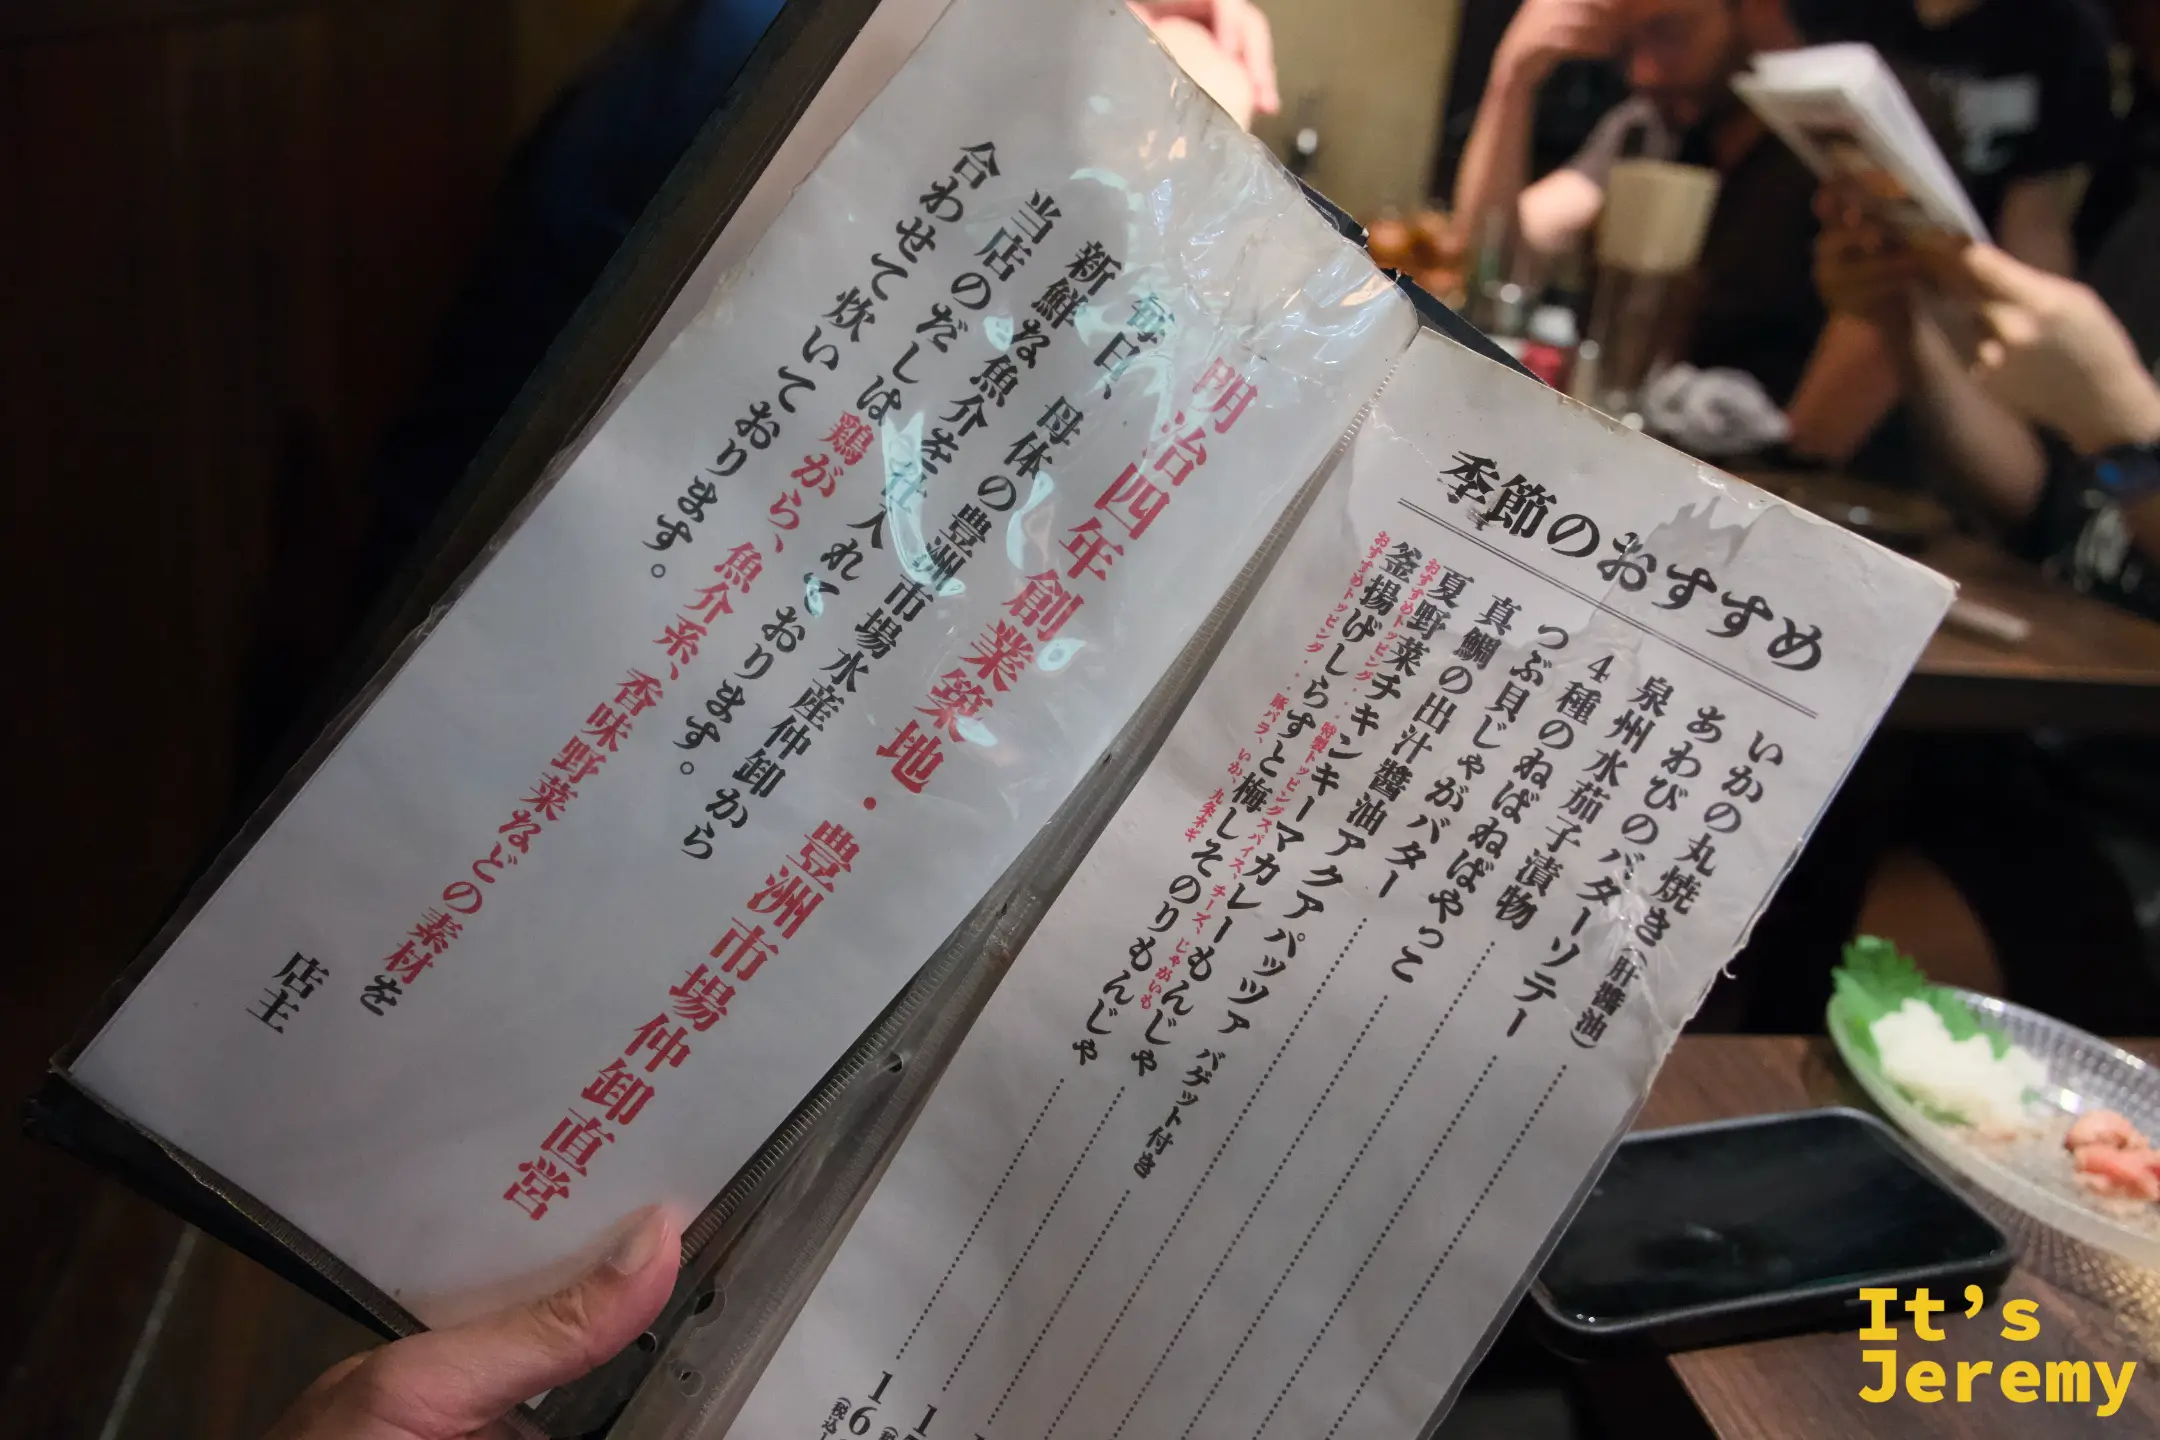 明治四年創業築地・豊洲市場仲卸直営
毎日、母体の豊洲市場水産仲卸から
新鮮な魚介を仕入れております。
当店のだしは鶏がら、魚介系、香味野菜などの素材を
合わせて炊いております。
店主
季節のおすすめ
いかの丸焼き(肝醬油)
あわびのバターソテー
泉州水茄子漬物
4種のねばねばやっこ
つぶ貝じゃがバター
真鯛の出汁醬油アクアパッツァ バゲット付き
夏野菜チキンキーマカレーもんじゃ
おすすめトッピング・・特製トッピングスパイス、チーズ、じゃがいも
釜揚げしらすと梅しそのりもんじゃ
おすすめトッピング・・豚バラ、いか、九条ネギ
It's
Jeremy